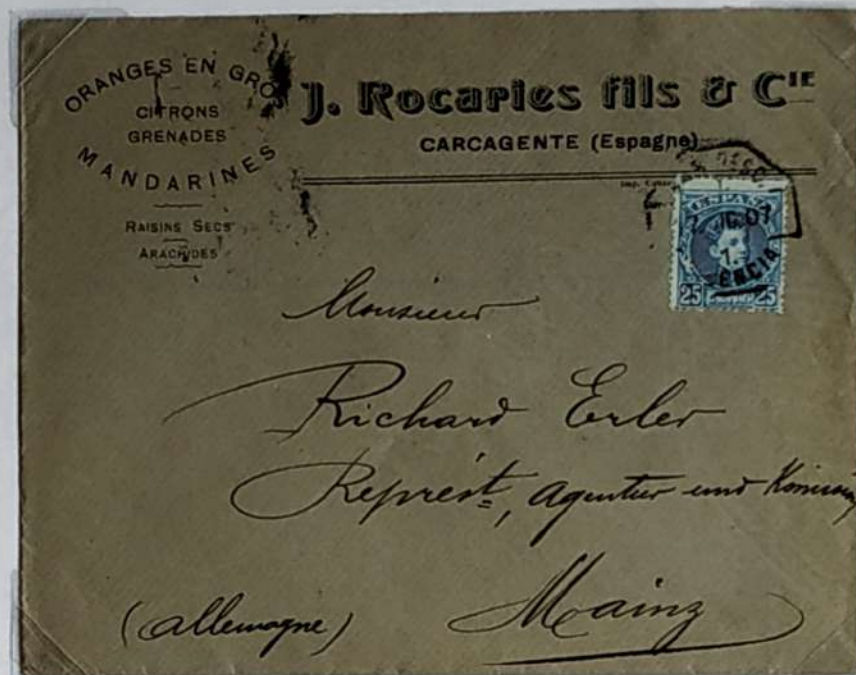 ORANGES EN GRO
CITRONS
GRENADES
MANDARINES
RAISINS SECS
ARACHIDES
J. Rocaries fils & CIE
CARCAGENTE (Espagne)
ESPAÑA
07
ENCIA
25 25
Monsieur
Richard Erler
Représt, Agentur und
Mainz
(allemagne)